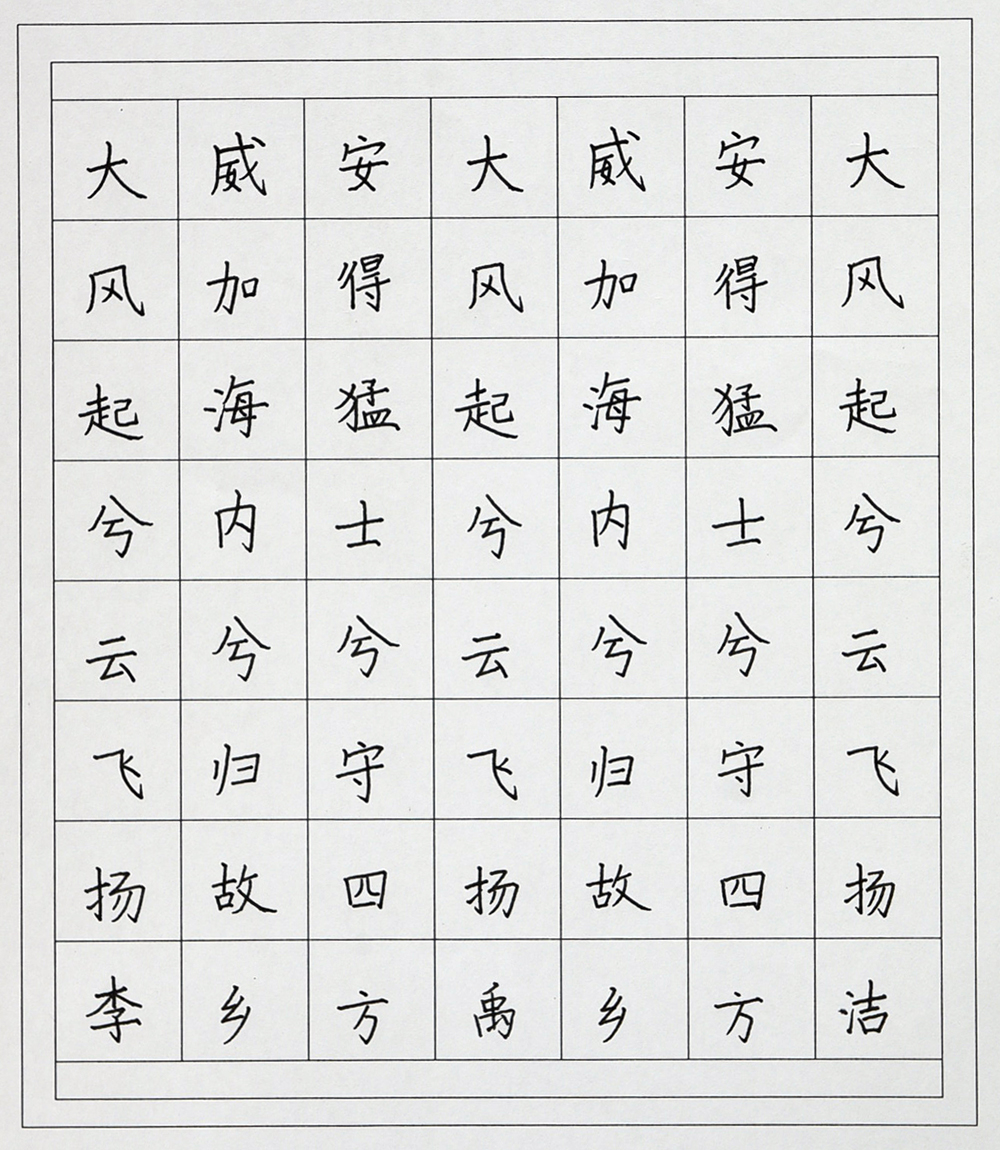 大风起兮云飞扬李
威加海内兮归故乡
安得猛士兮守四方
大风起兮云飞扬禹
威加海内兮归故乡
安得猛士兮守四方
大风起兮云飞扬洁